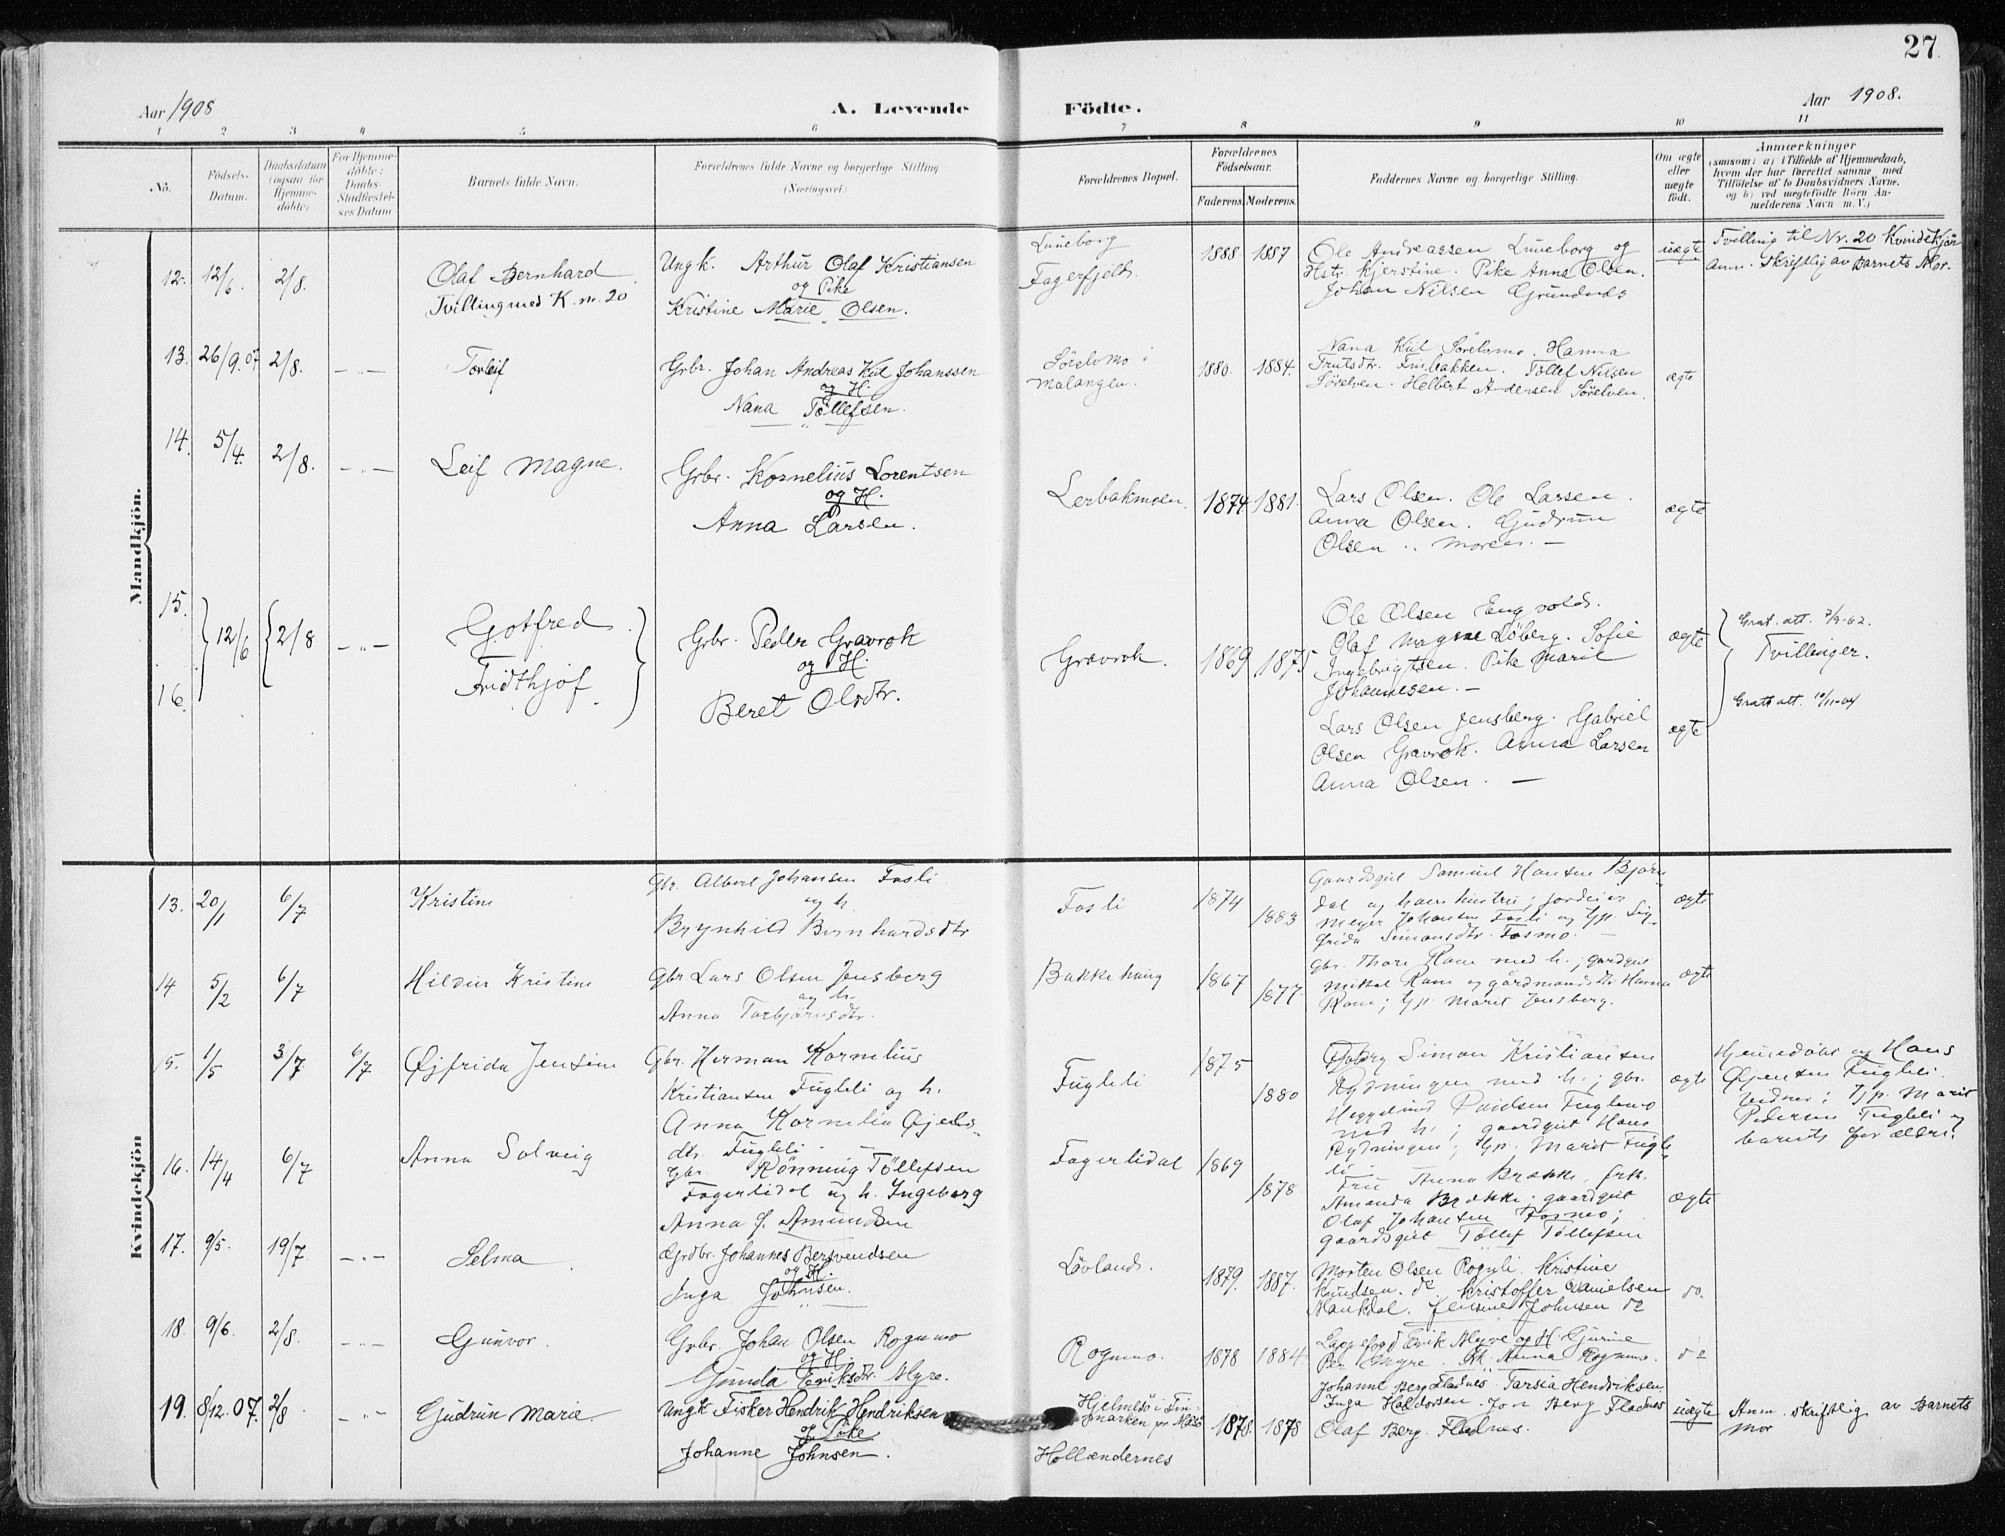 27.
Aar 1908
A. Levende
Födte.
Aar 1908.
1 2 3 4 5 6 7 8 9 10 11
No.
Födsels-
Datum.
Daabsdatum
(ogsaa for
Hjemme-
döbte)
For Hjemme-
döbte:
Daabs-
Stadfæstel-
ses Datum
Barnets fulde Navn.
Forældrenes fulde Navne og borgerlige Stilling
(Næringsvei)
Forældrenes Bopæl.
Forældrenes
Födselsaar.
Faderens. Moderens.
Faddernes Navne og borgerlige Stilling.
Om ægte
eller
uægte
födt.
Anmærkninger
(saasom: a) i Tilfælde af Hjemmedaab,
hvem der har forrettet samme, med
Tilföielse af to Daabsvidners Navne,
og b) ved uægtefödte Börn An-
melderens Navn m. V.)
Mandkjön.
12. 12/6. 2/8.
Olaf Bernhard
Tvilling med K. nr. 20
Ungk. Arthur Olaf Kristiansen
og Pike
Kristine Marie Olsen.
Luneborg
Fagerfjeld.
1888 1887
Ole Andreassen Luneborg og
Hstr. Kjerstine. Pike Anna Olsen.
Johan Nilsen Grundnæs
uægte
Tvilling til Nr. 20 Kvindekjön
Anm. skriftlig av Barnets Mor.
13. 26/9.07 2/8. — „ —
Torleif
Grbr. Johan Andreas Kiil Johanssen
og H.
Nana Tøllefsen.
Sørelvmo i
Malangen.
1880. 1884.
Nana Kiil Sørelvmo. Hanna
Trulsdtr. Finbakken. Tollef Nilsen
Sørelven. Helbert Andersen Sørelven.
ægte
14. 5/4. 2/8. — „ —
Leif Magne.
Grbr. Kornelius Lorentsen
og H.
Anna Larsen.
Lerbakmoen.
1874 1881.
Lars Olsen. Ole Larsen.
Anna Olsen. Gudrun
Olsen .. Moren. —
ægte
15.
16.
12/6 2/8 — „ —
Gotfred
Fridthjof.
Grbr. Peder Gravrok
og H.
Beret Olsdtr.
Gravrok.
1869 1875
Ole Olsen Engvold.
Olaf Magne Løberg. Sofie
Ingebrigtsen. Pike Marie
Johannesen. —
ægte
Lars Olsen Jensberg. Gabriel
Olsen Gravrok. Anna Larsen
Anna Olsen. —
ægte
Grat. att. 7/9-62.
Tvillinger.
Gratt att. 10/11-04
Kvindekjön
13. 20/1 6/7
Kristine
Gbr. Albert Johansen Fosli
og h.
Brynhild Bernhardsdtr
Fosli
1874
1883
Gaardsgut Samuel Hansen Bjørn
dal og hans hustru; jordeier
Meyer Johansen Fosli og Gp. Sig-
frida Simonsdtr. Fosmo. —
ægte
14 5/2 6/7
Hildur Kristine
Gbr Lars Olsen Jensberg
og h.
Anna Torbjørnsdtr.
Bakkehaug
1867
1877
Gbr. Thore Ram med h.; gardgut
Mikkal Ram og gårdmandsdtr Hanna
Ram; Gp. Marit Jensberg.
ægte
15. 1/5 3/7 6/7
Øjfrida Jensine
Gbr. Herman Kornelius
Kristiansen Fugleli og h.
Anna Kornelia Øjens-
dtr. Fugleli
Fugleli
1875
1880
Simon Kristiansen
Rydningen med h.; gbr.
Heggelund Paulsen Fuglemo
med h.; gaardgut Hans
Rydningen; Gp. Marit Fugle
li
ægte
Hjemmedøbt og Hans
Øjensen Fugleli
vidner; Gp. Marit
Pedersen Fugleli og
barnets forældre.
16. 14/4 6/7
Anna Solveig
Gbr. Rønning Tøllefsen
Fagerlidal og h. Ingeborg
Anna f. Amundsen
Fagerlidal
1869
1878
Fru Anna Brække, frk.
Amanda Brække; gaardgut
Olaf Johansen Fosmo;
gaardsgut Tøllef Tøllefsen
ægte
17. 9/5. 19/7 — „ —
Selma
Grdbr. Johannes Bersvendsen
og H.
Inga Johnsen.
Løvland.
1879. 1887.
Morten Olsen Rognli. Kristine
Knudsen. do Kristoffer Danielsen
Maukdal. Jensine Johnsen do
do.
18. 9/6. 2/8. — „ —
Gunvor.
Grbr. Johan Olsen Rognmo
og H.
Gunda Eriksdtr. Myre.
Rognmo.
1878 1884
Lappefogd Erik Myre og H. Gurine
Per Myre. Anna Rognmo.
do
19. 8/12.07. 2/8 — „ —
Gudrun Marie.
Ungk Fisker Hendrik Hendriksen
og Pike
Johanne Johnsen.
Hjelmsø i Fin-
marken
Hollændernes
1878. 1878
Johanne Berg Fladnes Tarsia Hendriksen.
Inga Halldorsen. Jon Berg Fladnes
Olaf Berg. Fladnes.
uægte
Anm. skriftlig av Barnets
Mor